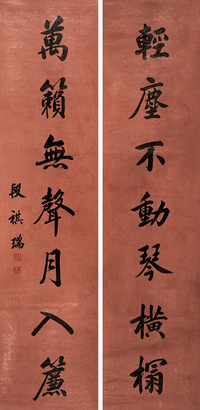 輕塵不動琴橫榻
萬籟無聲月入簾
段祺瑞